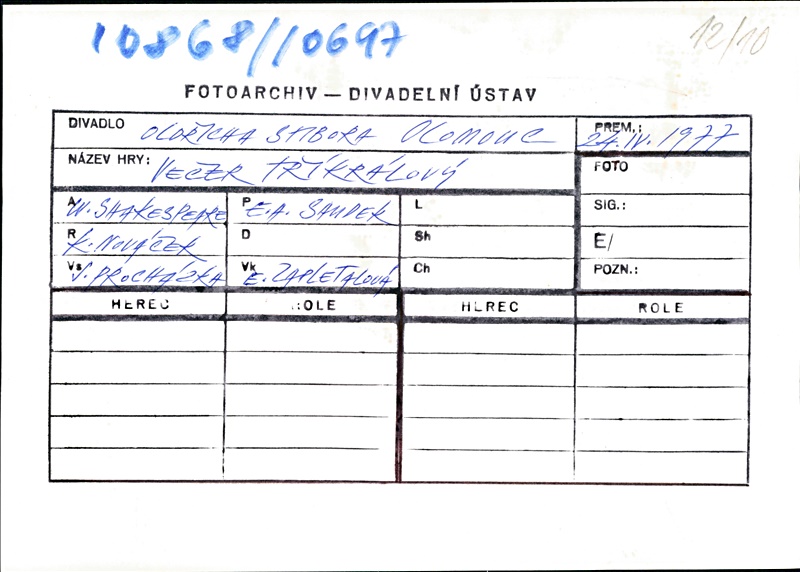 10868/10697
12/10
FOTOARCHIV — DIVADELNÍ ÚSTAV
DIVADLO OLDŘICHA STIBORA OLOMOUC
PREM.: 24. IV. 1977
NÁZEV HRY: VEČER TŘÍKRÁLOVÝ
FOTO
A W. SHAKESPEARE P E.A. SAUDEK L
SIG.:
R K. NOVÁČEK D Sh
E/
Vs J. PROCHÁZKA Vk E. ZAPLETALOVÁ Ch
POZN.:
HEREC ROLE HEREC ROLE